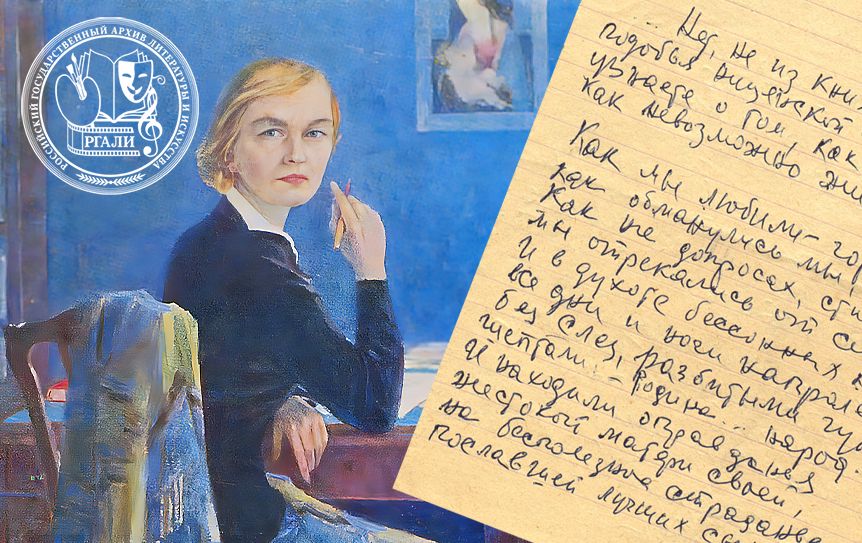 РОССИЙСКИЙ ГОСУДАРСТВЕННЫЙ АРХИВ ЛИТЕРАТУРЫ И ИСКУССТВА
РГАЛИ
Нет, не из кни
подобья нищенской
узнаете о том, как
как невозможно жи
Как мы любили – гор
как обманулись мы
Как на допросах, сти
мы отрекались от се
И в духоте бессонных
все дни и ночи напрол
без слез, разбитыми гу
шептали: – Родина... народ
И находили оправданья
жестокой матери своей,
на бесполезное страданье
пославшей лучших сы